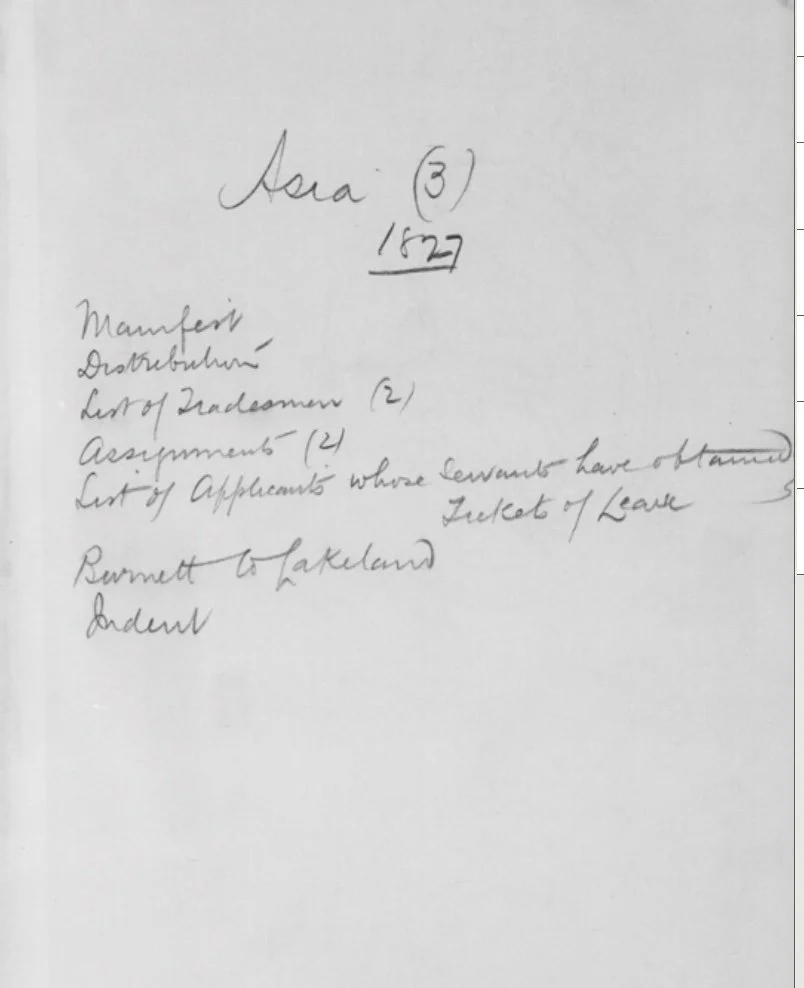 Asia (3)
1827
Manifest
Distribution
List of Tradesmen (2)
Assignments (2)
List of Applicants whose Servants have obtained
Tickets of Leave
Burnett to Lakeland
Indent